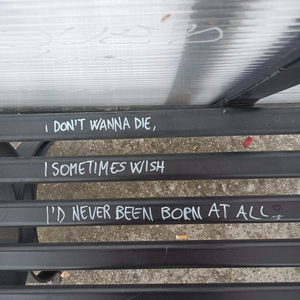 I DON'T WANNA DIE,
I SOMETIMES WISH
I'D NEVER BEEN BORN AT ALL.